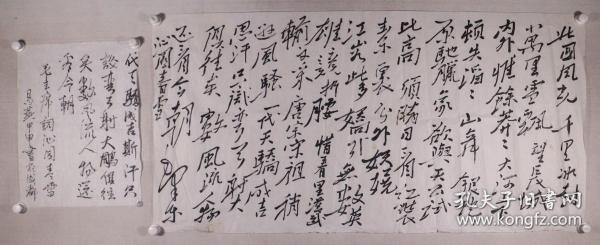 北国风光 千里冰封
万里雪飘 望长城
内外惟餘莽〻大河上下
顿失滔〻 山舞银蛇
原驰腊象欲与天公试
比高 须晴日看红装
素裹分外妖娆
江山如此多娇引无数英
雄竞折腰 惜秦皇汉武
输文采唐宗宋祖稍
逊风骚 一代天骄成吉
思汗只识弯弓射大
雕俱往矣数风流人物
还看今朝 毛泽东
沁园春雪
代天骄成吉斯汗只
识弯弓射大雕俱往
矣数风流人物还
看今朝
毛主席词沁园春雪
孔夫子旧书网
kongfz.com